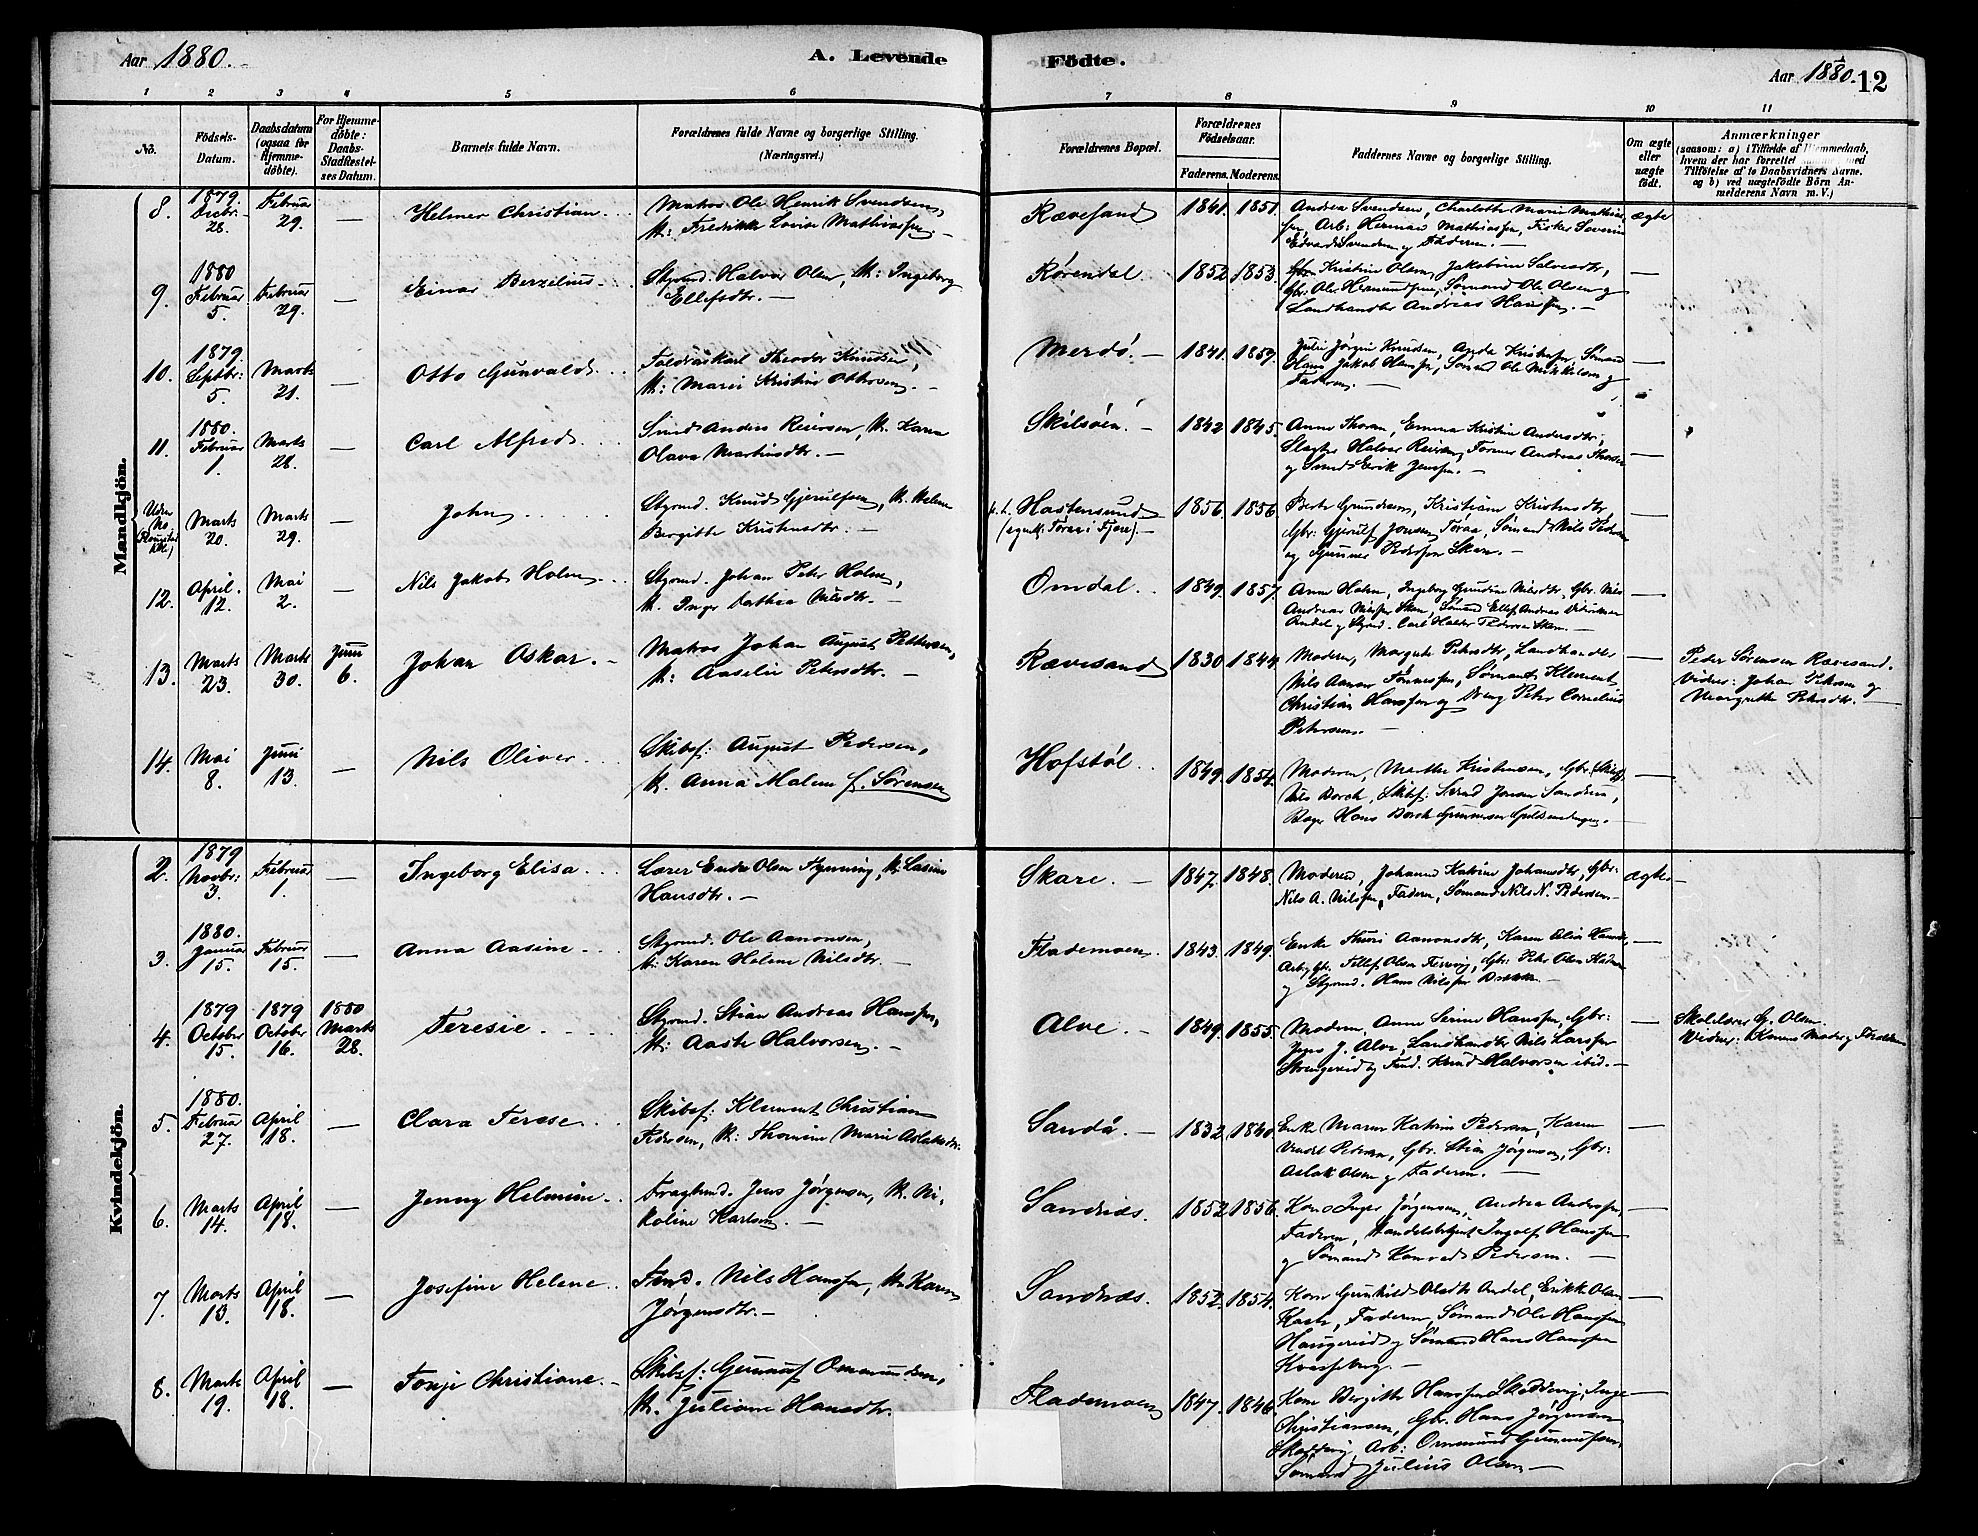 Aar 1880.
A. Levende
Födte.
Aar 1880.
12
1 2 3 4 5 6 7 8 9 10 11
No.
Födsels-Datum.
Daabsdatum (ogsaa for Hjemmedöbte).
For Hjemmedöbte: Daabs-Stadfæstelses Datum.
Barnets fulde Navn.
Forældrenes fulde Navne og borgerlige Stilling. (Næringsvei.)
Forældrenes Bopæl.
Forældrenes Födselsaar.
Faderens. Moderens.
Faddernes Navne og borgerlige Stilling.
Om ægte eller uægte födt.
Anmærkninger
(saasom: a) i Tilfælde af Hjemmedaab,
hvem der har forrettet samme, med
Tilföielse af to Daabsvidners Navne.
og b) ved uægtefödte Börn Anmelderens Navn m. V.)
Mandkjön.
8. 1879 Decbr. 28. Februar 29. — Helmer Christian Matros Ole Henrik Svendsen,
K: Fredrikke Lovise Mathiassen. —
Rævesand 1841. 1851. Andrea Svendsen, Charlotte Marie Mathiassen, Arb: Herman Mathiassen, Fisker Severin
Edvard Svendsen og Faderen. — ægte
9. 1880 Februar 5. Februar 29. — Einar Berzelius Styrmd. Halvor Olsen, K: Ingeborg
Ellefsdtr. —
Rörendal 1852 1853. Kristine Olsen, Jakobine Salvesdtr,
Gbr: Ole Hermundsen, Sömand Ole Olsen og
Landhandler Andreas Hanssen. — —
10. 1879. Septbr: 5. Marts 21. — Otto Gunvald Theodor Knudsen,
K: Marie Kristine Ottersen. —
Merdö. — 1841. 1859. Julie Jörgine Knudsen, Sömand
Hans Jakob Hanssen, Sömd Ole Mikkelsen og
Faderen. — —
11. 1880. Februar 1. Marts 28. — Carl Alfred Smed Anders Reiersen, K. Karen
Olava Martinsdtr. —
Skilsöen. — 1842 1845. Anne Thorsen, Emma Kristine Andersdtr,
Slagter Halvor Reiersen, Former Andreas Thorsen
og Smed Erik Jenssen. — —
Uden No Marts 20. Marts 29. — John Styrmd. Knud Gjerulfsen, K. Helene
Bergitte Kristensdtr. —
Hastensund
(egentl. Töraa i Fjære). —
1856. 1856 Kristiane Kristensdtr
Gbr: Gjerulf Jonsen Töraa, Sömand Nils Pedersen
og Gunner Pederssen Skare. — —
12. April. 12. Mai 2. — Nils Jakob Holm Styrmd. Johan Peter Holm,
K. Inger Dathea Nilsdtr. —
Omdal. 1849. 1857. Anne Holm, Ingeborg Gundine Nilsdtr, Gbr. Nils
Andreas Nilssen Skare, Sömand Ellef Andreas
og Styrmd. Carl Pedersen Skare. — —
13. Marts 23. Marts 30. Juni 6. Johan Oskar. — Matros Johan August Pettersen,
K: Aaselie Petersdtr. —
Rævesand 1830 1844. Moderen, Margrete Petersdtr, Landhandler
Nils Aanon Tönnessen, Sömand Klement
Christian Hanssen og Dreng Peter Cornelius
Petersen. — —
Peder Sörensen Rævesand.
Vidner: Johan Petersen og
Margrethe Petersdtr. —
14. Mai 8. Juni 13. — Nils Oliver Skibsf: August Pedersen,
K. Anna Malene f. Sörensen
Hofstöl 1849. 1854. Moderen, Marthe Kristensen, Gbr: (Skibsf)
Nils Borch, Skibsf: Svend Jensen Sandum,
Bager Hans Borch Gunnersen. — —
Kvindekjön.
2. 1879 Novbr: 3. Februar 1. — Ingeborg Elisa Lærer Endre Olsen Hynning, K: Lasine
Hansdtr. —
Skare. — 1847. 1848. Moderen, Johanne Katrine Johansdtr, Gbr:
Nils A. Nilssen, Faderen, Sömand Nils N. Pedersen — ægte —
3. 1880. Januar 15. Februar 15. — Anna Aasine Styrmd. Ole Aanonsen,
K: Karen Helene Nilsdtr. —
Flademoen 1843. 1849. Enke Thuri Aanonsdtr, Karen Alise Hansdtr,
Gbr. Tellef Olsen Færvig, Gbr: Peter Olsen
og Styrmd. Hans Nilssen — —
4. 1879 October 15. 1879 October 16. 1880 Marts 28. Teresie Styrmd. Stian Andreas Hanssen,
K: Aaste Halvorsen. —
Alve. — 1849. 1855. Moderen, Anne Serine Hanssen, Gbr:
Jens J. Alve, Landhandler Nils Larssen
Strengereid og Tmd. Knud Halvorsen ibid. — —
Skolelærer G. Olsen
Vidner: Konens Moder og Faderen
5. 1880. Februar 27. April 18. — Clara Terese Skibsf: Klement Christian
Pedersen, K: Thomine Marie Aslaksdtr.
Sandö. — 1832 1840. Enke Maren Katrine Pedersen, Karen
Vendel Pedersen, Gbr. Stian Jörgensen, Gbr:
Aslak Olsen og Faderen. — —
6. Marts 14. April 18. — Jenny Helmine Jens Jörgensen, K. Nikoline Karlsen. —
Sandnæs. 1852 1856. Kone Inger Jörgensen, Andrea Anderssen,
Faderen, Handelsbetjent Ingolf Hanssen
og Sömand Konrad Pedersen. — —
7. Marts 13. April 18. — Josefine Helene Tmd. Nils Hanssen, K. Karen
Jörgensdtr. —
Sandnæs. 1852. 1854. Kone Gunhild Olsdtr Andel, Erikke Olsen
Faderen, Sömand Ole Hanssen
Haugereid og Sömand Hans Hanssen
Kvasseberg. — —
8. Marts 19. April 18. — Tonje Christiane. — Skibsf: Gunnuf Ommundsen,
K. Juliane Hansdtr.
Flademoen 1847. 1846. Kone Bergitte Hanssen Skottevig, Inge
Christiansen, Gbr. Hans Jörgensen
Skottevig, Arb: Ommund Gunnufsen,
Sömand Julius Olsen — —